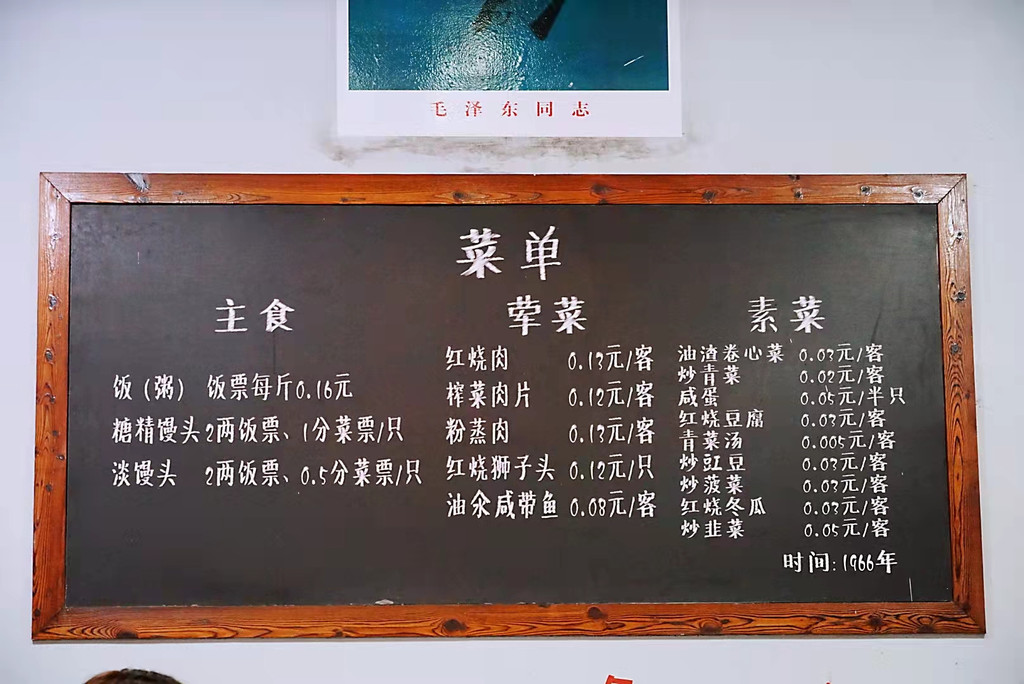 毛泽东同志
菜单
主食
饭（粥） 饭票每斤0.16元
糖精馒头2两饭票、1分菜票/只
淡馒头 2两饭票、0.5分菜票/只
荤菜
红烧肉 0.13元/客
榨菜肉片 0.12元/客
粉蒸肉 0.13元/客
红烧狮子头 0.12元/只
油氽咸带鱼 0.08元/客
素菜
油渣卷心菜 0.03元/客
炒青菜 0.02元/客
咸蛋 0.05元/半只
红烧豆腐 0.03元/客
青菜汤 0.005元/客
炒豇豆 0.03元/客
炒菠菜 0.03元/客
红烧冬瓜 0.03元/客
炒韭菜 0.05元/客
时间:1966年